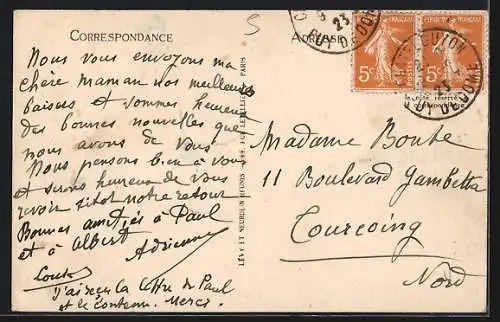 CORRESPONDANCE
ADRESSE
Nous vous envoyons ma
chère maman nos meilleurs
baisers et sommes heureux
des bonnes nouvelles que
nous avons de vous
Nous pensons bien à vous
et serons heureux de vous
revoir sitôt notre retour
Bonnes amitiés à Paul
et à Albert
Adrienne
Louis
J'ai reçu la lettre de Paul
et le contenu. Merci.
LÉVY ET NEURDEIN RÉUNIS
PARIS
5c
POSTES
5c
23
PUY DE DOME
23
PUY DE DOME
Madame Boute
11 Boulevard Gambetta
Tourcoing
Nord